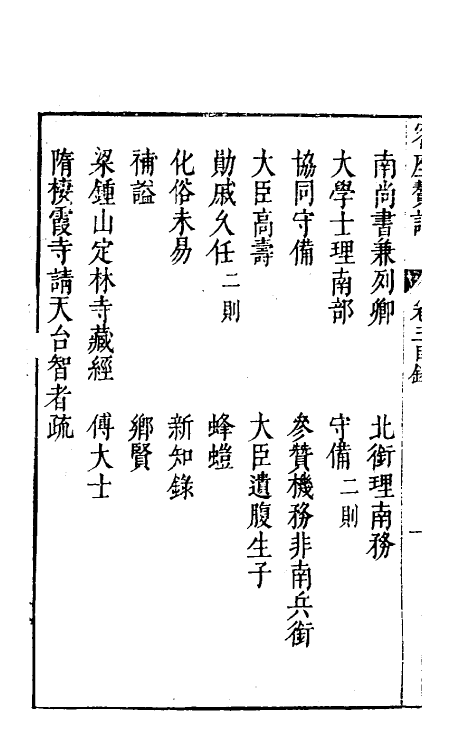 客座贅語 卷三目錄 一
南尚書兼列卿 北銜理南務
大學士理南部 守備二則
協同守備 參贊機務非南兵銜
大臣高壽 大臣遺腹生子
勛戚久任二則 蜂螘
化俗未易 新知錄
補謚 鄉賢
梁鍾山定林寺藏經 傅大士
隋棲霞寺請天台智者疏